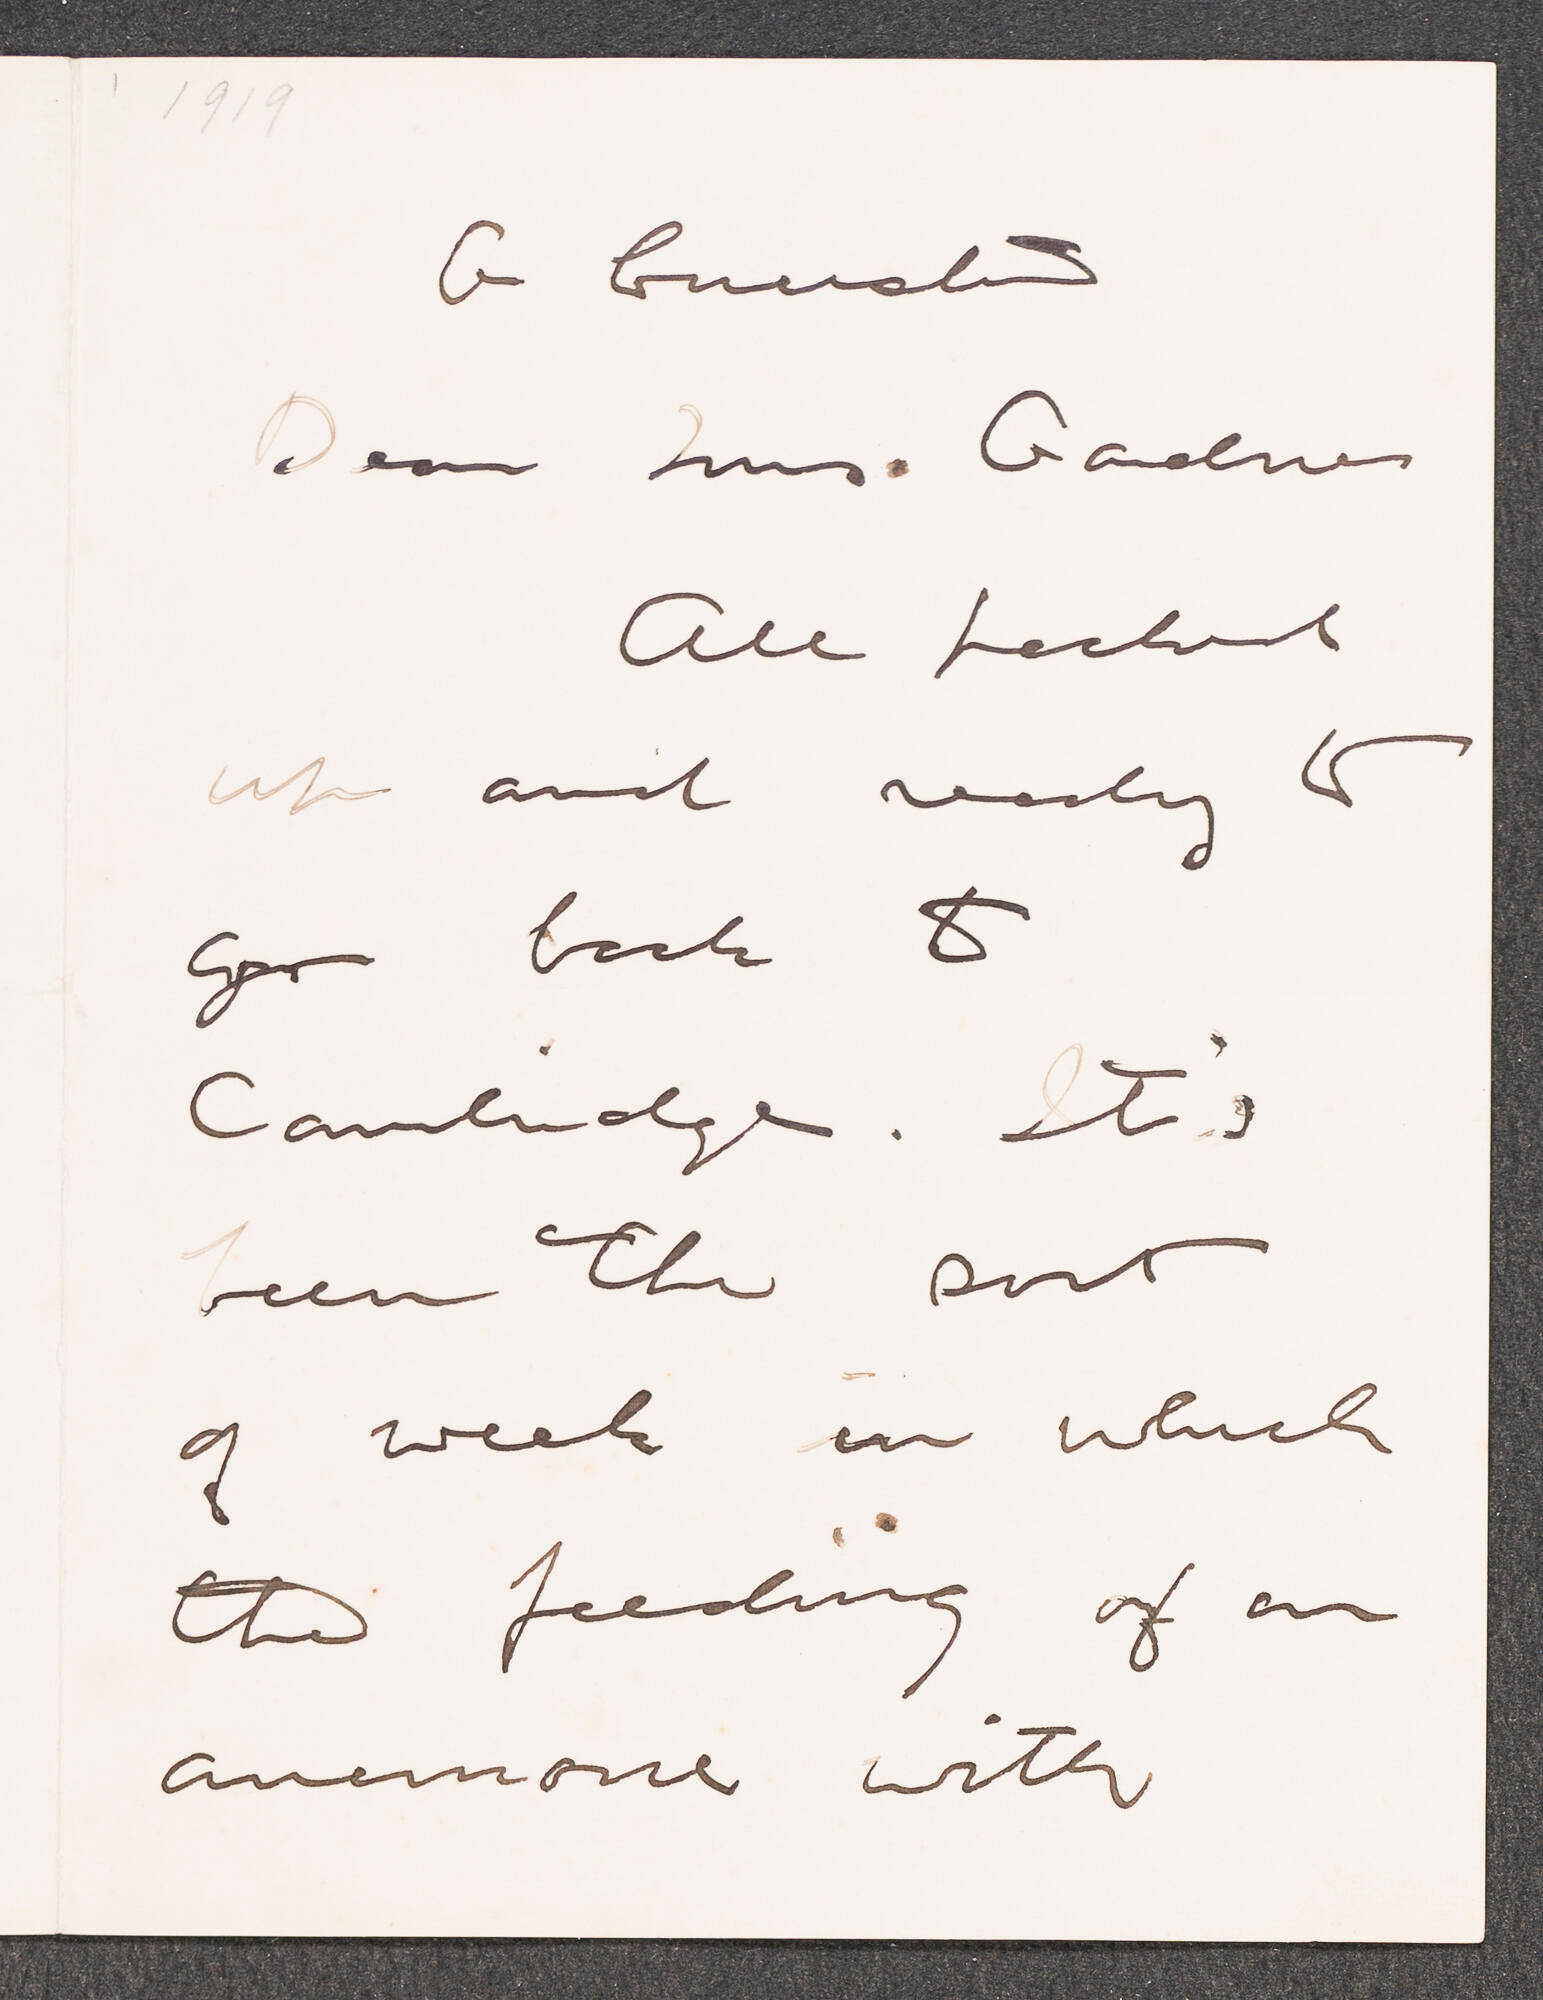 1919
Dear Mrs. Gardner
All packed
up and ready to
go back to
Cambridge. It's
been the sort
of week in which
the feeding of an
anemone with